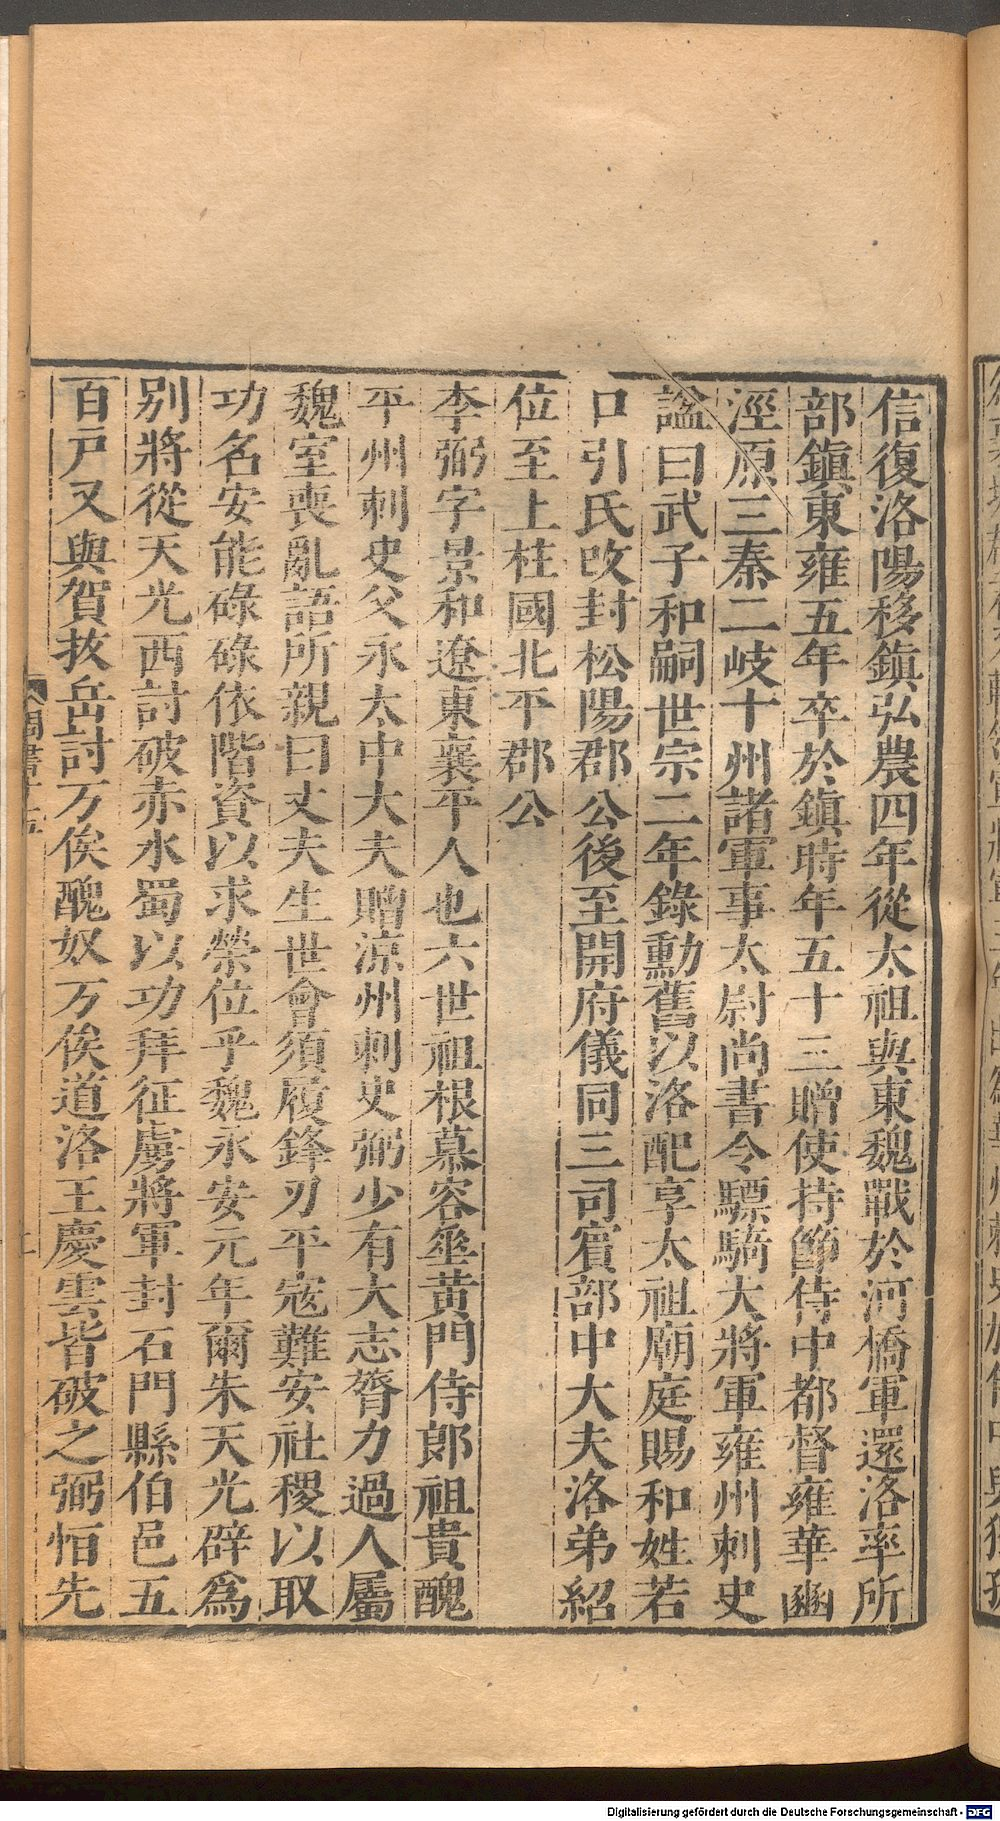 信復洛陽移鎮弘農四年從太祖與東魏戰於河橋軍還洛率所
部鎮東雍五年卒於鎮時年五十三贈使持節侍中都督雍華豳
涇原三秦二岐十州諸軍事太尉尚書令驃騎大將軍雍州刺史
諡曰武子和嗣世宗二年錄勳舊以洛配享太祖廟庭賜和姓若
口引氏改封松陽郡公後至開府儀同三司賓部中大夫洛弟紹
位至上柱國北平郡公
李弼字景和遼東襄平人也六世祖根慕容垂黃門侍郎祖貴醜
平州刺史父永太中大夫贈涼州刺史弼少有大志膂力過人屬
魏室喪亂語所親曰丈夫生世會須履鋒刃平寇難安社稷以取
功名安能碌碌依階資以求榮位乎魏永安元年爾朱天光辟為
別將從天光西討破赤水蜀以功拜征虜將軍封石門縣伯邑五
百戶又與賀拔岳討万俟醜奴万俟道洛王慶雲皆破之弼恒先
Digitalisierung gefördert durch die Deutsche Forschungsgemeinschaft - DFG